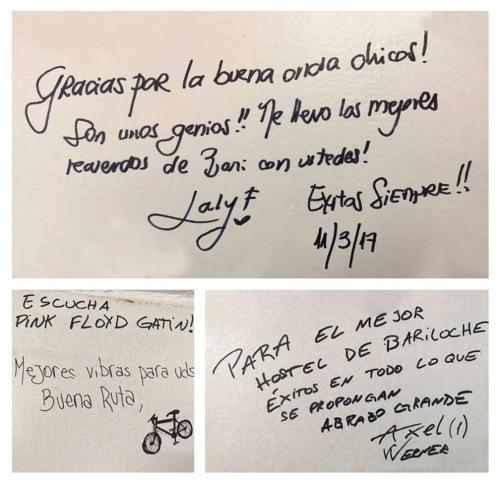 Gracias por la buena onda chicos!
Son unos genios!! Me llevo los mejores
recuerdos de Bari con ustedes!
Laly F
Exitos SIEMPRE!!
11/3/17
ESCUCHA
PINK FLOYD GATIN!
Mejores vibras para uds
Buena Ruta,
PARA EL MEJOR
HOSTEL DE BARILOCHE
ÉXITOS EN TODO LO QUE
SE PROPONGAN
ABRAZO GRANDE
Axel (1)
WERNER